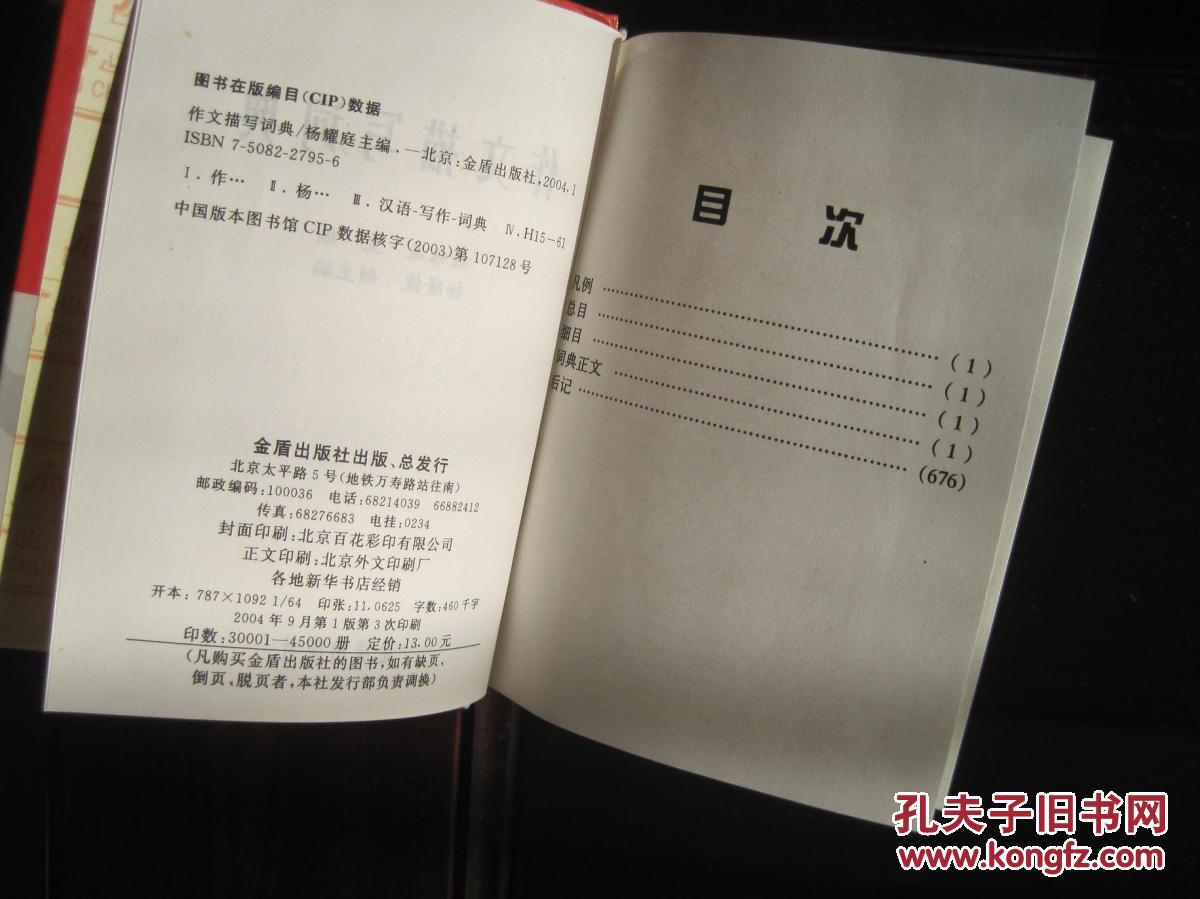 图书在版编目(CIP)数据
作文描写词典/杨耀庭主编.—北京:金盾出版社,2004.1
ISBN 7-5082-2795-6
Ⅰ.作… Ⅱ.杨… Ⅲ.汉语-写作-词典 Ⅳ.H15-61
中国版本图书馆CIP数据核字(2003)第107128号
金盾出版社出版、总发行
北京太平路5号(地铁万寿路站往南)
邮政编码:100036 电话:68214039 66882412
传真:68276683 电挂:0234
封面印刷:北京百花彩印有限公司
正文印刷:北京外文印刷厂
各地新华书店经销
开本:787×1092 1/64 印张:11.0625 字数:460千字
2004年9月第1版第3次印刷
印数:30001—45000册 定价:13.00元
(凡购买金盾出版社的图书,如有缺页、
倒页、脱页者,本社发行部负责调换)
目 次
凡例 ……………………………… (1)
总目 ……………………………… (1)
细目 ……………………………… (1)
词典正文 ……………………………… (1)
后记 ……………………………… (676)
孔夫子旧书网
www.kongfz.com